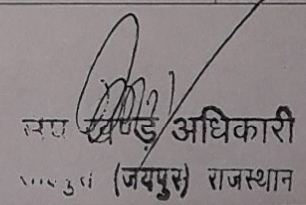 उप खण्ड अधिकारी
(जयपुर) राजस्थान